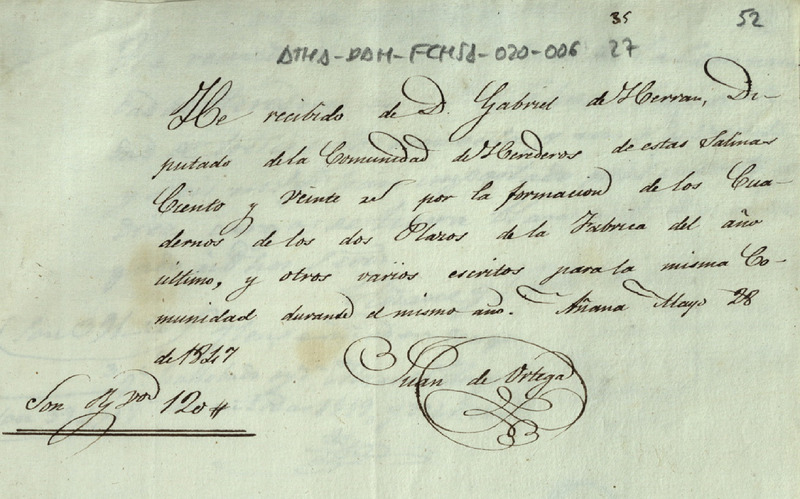 35 52
ATHA-DAH-FCMSA-020-006 27
He recibido de D. Gabriel de Herran, Di-
putado de la Comunidad de Herederos de estas Salinas
Ciento y veinte rs por la formacion de los Cua-
dernos de los dos Plazos de la Fabrica del año
último, y otros varios escritos para la misma Co-
munidad durante el mismo año. Añana Mayo 28
de 1847
Juan de Ortega
Son 120